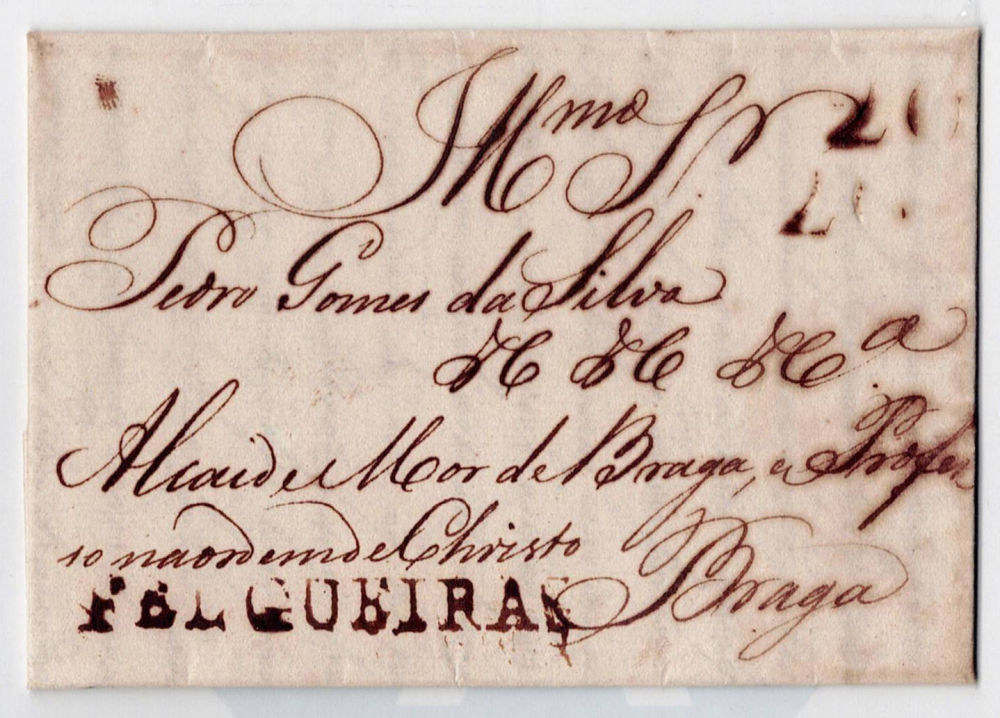 Illmo Sr
20
20
Pedro Gomes da Silva
&C &C &Ca
Alcaide Mor de Braga, e Profes
so na ordem de Christo
Braga
FELGUEIRAS